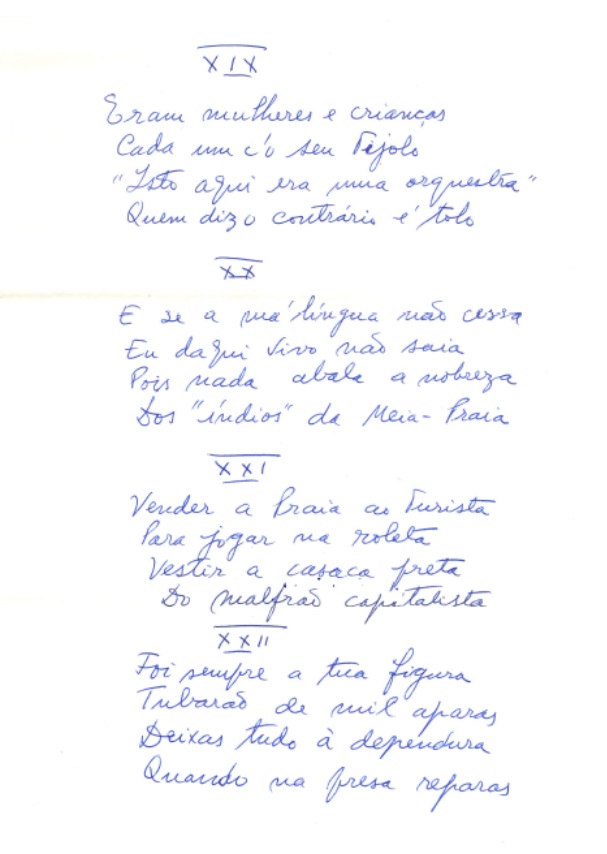 XIX
Eram mulheres e crianças
Cada um c'o seu Tijolo
"Isto aqui era uma orquestra"
Quem diz o contrário é tolo
XX
E se a má língua não cessa
Eu daqui vivo não saia
Pois nada abala a nobreza
Dos "índios" da Meia-Praia
XXI
Vender a Praia ao Turista
Para jogar na roleta
Vestir a casaca preta
Do malfrão capitalista
XXII
Foi sempre a tua figura
Tubarão de mil aparas
Deixas tudo à dependura
Quando na presa reparas